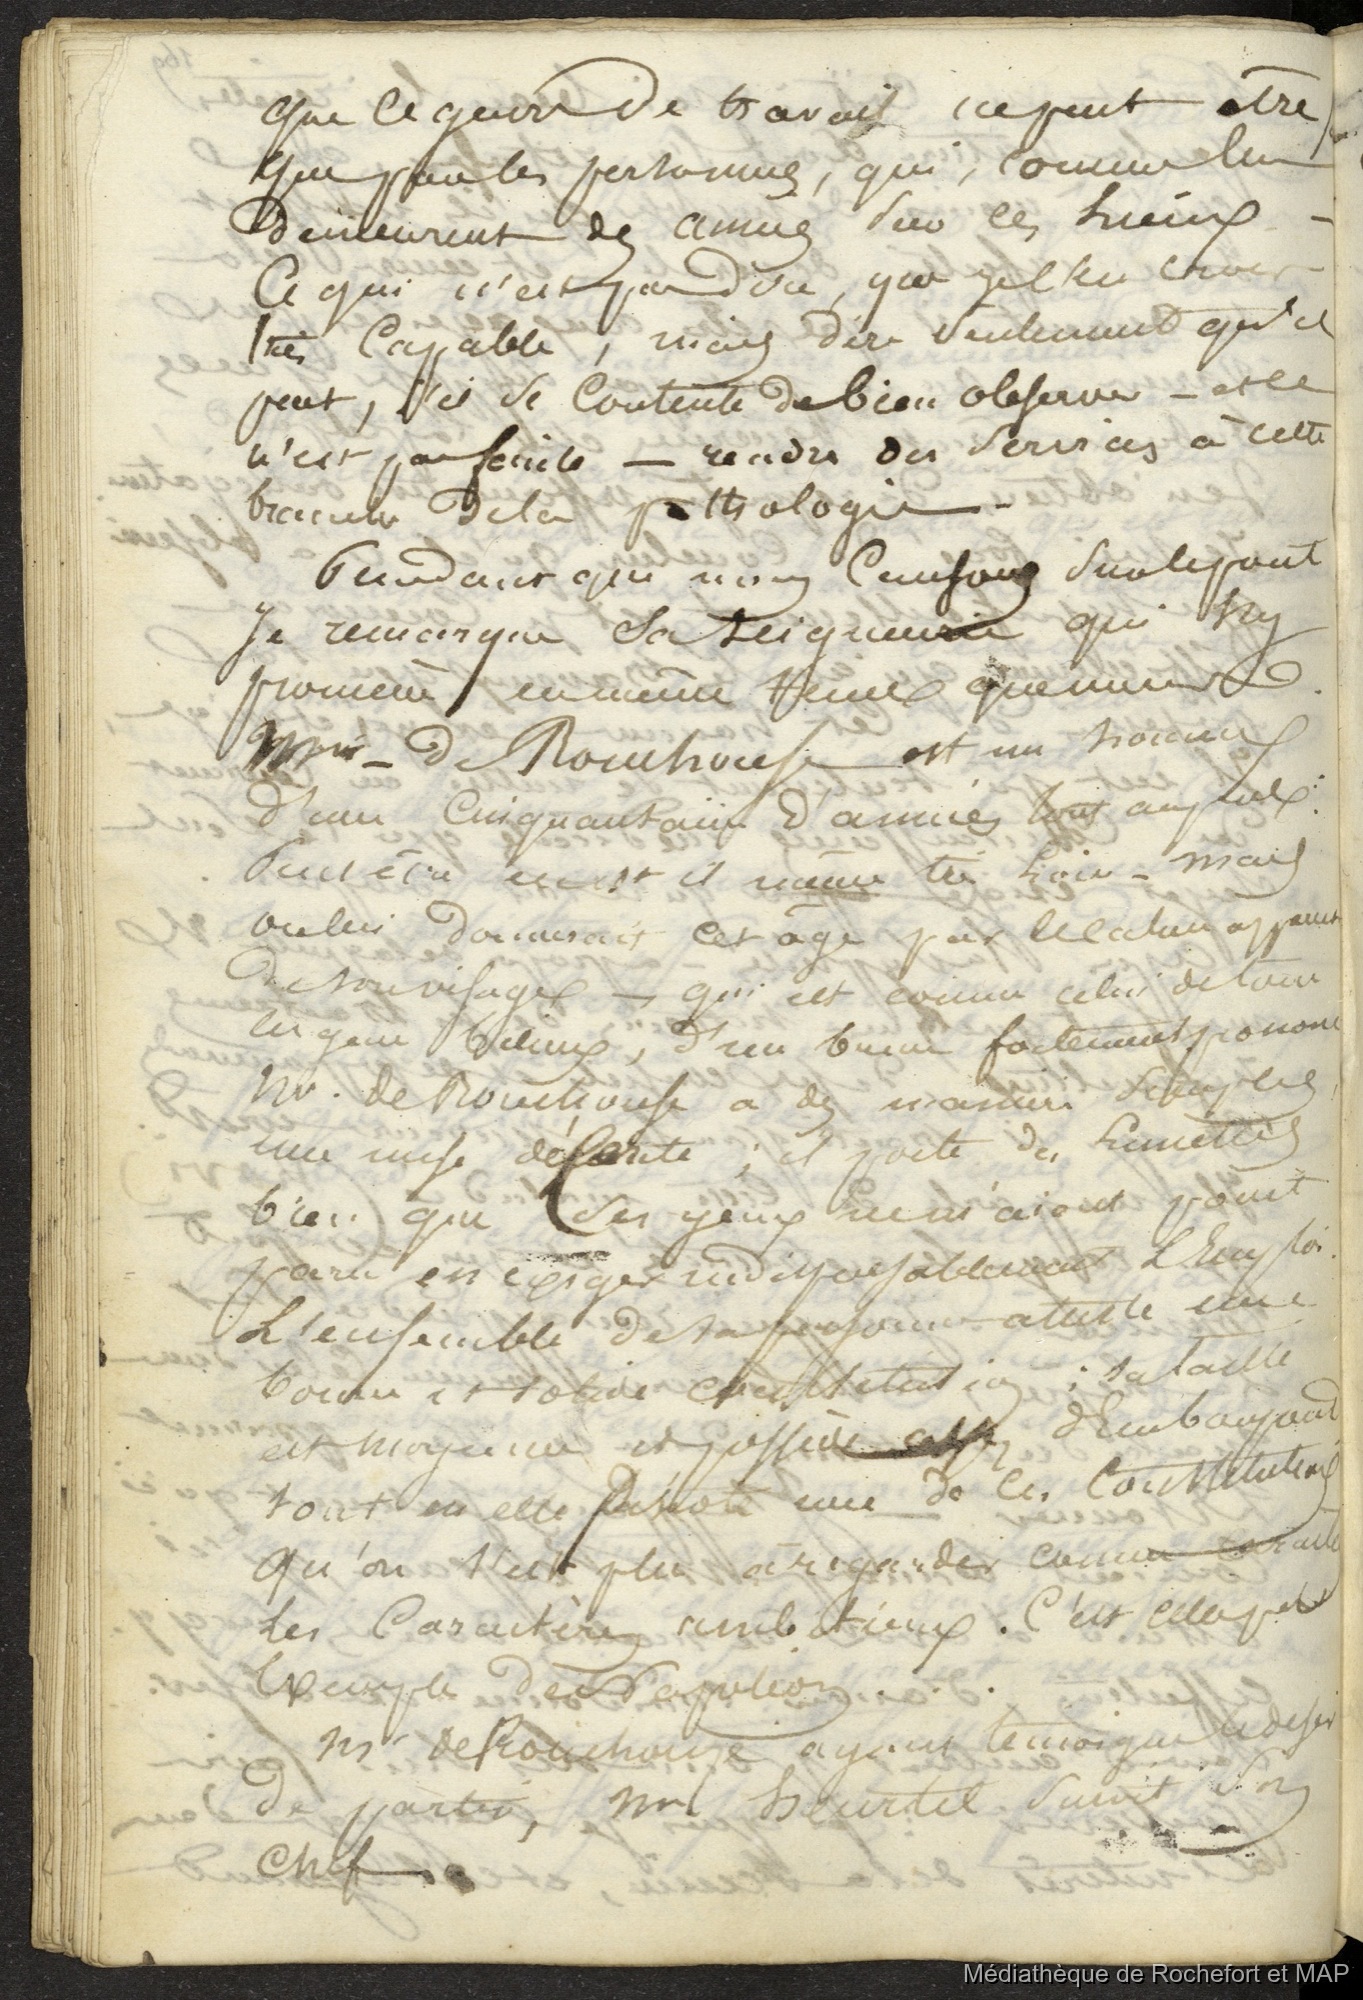 que ce genre de travail ne peut être
que par les personnes, qui, comme lui
demeurent des années sur les lieux -
Ce qui n'est pas dire, que je l'en crois
très Capable, mais dire seulement qu'il
peut, s'il se Contente de bien observer - et ce
n'est pas facile - rendre des services à cette
branche de la pathologie -
Pendant que nous Causons sur le pont
Je remarque Sa Seigneurie qui s'y
promène en même temps que nous.
Mgr - de Rouchouse est un homme
d'une Cinquantaine d'années tout au plus :
Peut être en est il même très loin - mais
on lui donnerait cet âge par
de son visage - qui est comme celui de tous
les gens bilieux, d'un brun fortement prononcé
Mr. de Rouchouse a des manières simples,
une mise décente ; il porte des lunettes
bien que ses yeux ne m'aient point
paru en exiger indispensablement l'Emploi.
L'ensemble de sa personne atteste une
bonne et solide constitution ; sa taille
est moyenne et possède assez d'Embonpoint
tout en elle dénote une de ces Constitutions
qu'on s'est plu à regarder comme
les Caractères ambitieux. C'est
Exemple de Napoléon . . .
Mr de Rouchouse ayant témoigné le désir
de partir, Mr Heurtel suivit son
chef -
Médiathèque de Rochefort et MAP